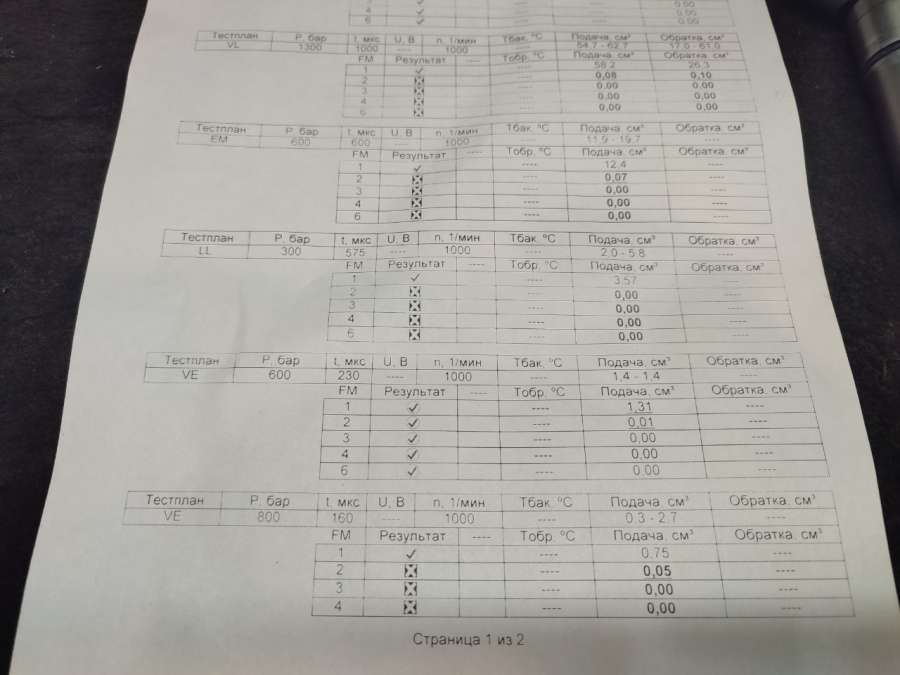 0.00
4 ✓ 0.00
6 ✓ 0.00
Тестплан P, бар t, мкс U, В n, 1/мин Тбак. °C Подача, см³ Обратка, см³
VL 1300 1000 ---- 1000 ---- 54.7 - 62.7 17.0 - 61.0
FM Результат ---- Тобр, °C Подача, см³ Обратка, см³
1 ✓ ---- 58.2 26.3
2 ---- 0,08 0,10
3 ---- 0.00 0.00
4 ---- 0,00 0,00
6 ---- 0,00 0,00
Тестплан P, бар t, мкс U, В n, 1/мин Тбак. °C Подача, см³ Обратка, см³
EM 600 600 ---- 1000 ---- 11.9 - 19.7 ----
FM Результат ---- Тобр, °C Подача, см³ Обратка, см³
1 ✓ ---- 12.4 ----
2 ---- 0,07 ----
3 ---- 0,00 ----
4 ---- 0,00 ----
6 ---- 0,00 ----
Тестплан P, бар t, мкс U, В n, 1/мин Тбак. °C Подача, см³ Обратка, см³
LL 300 575 ---- 1000 ---- 2.0 - 5.8 ----
FM Результат ---- Тобр, °C Подача, см³ Обратка, см³
1 ✓ ---- 3,57 ----
2 ---- 0,00 ----
3 ---- 0,00 ----
4 ---- 0,00 ----
6 ---- 0,00 ----
Тестплан P, бар t, мкс U, В n, 1/мин Тбак. °C Подача, см³ Обратка, см³
VE 600 230 ---- 1000 ---- 1.4 - 1.4 ----
FM Результат ---- Тобр, °C Подача, см³ Обратка, см³
1 ✓ ---- 1,31 ----
2 ✓ ---- 0,01 ----
3 ✓ ---- 0,00 ----
4 ✓ ---- 0,00 ----
6 ✓ ---- 0.00 ----
Тестплан P, бар t, мкс U, В n, 1/мин Тбак. °C Подача, см³ Обратка, см³
VE 800 160 ---- 1000 ---- 0.3 - 2.7 ----
FM Результат ---- Тобр, °C Подача, см³ Обратка, см³
1 ✓ ---- 0.75 ----
2 ---- 0,05 ----
3 ---- 0,00 ----
4 ---- 0,00 ----
Страница 1 из 2